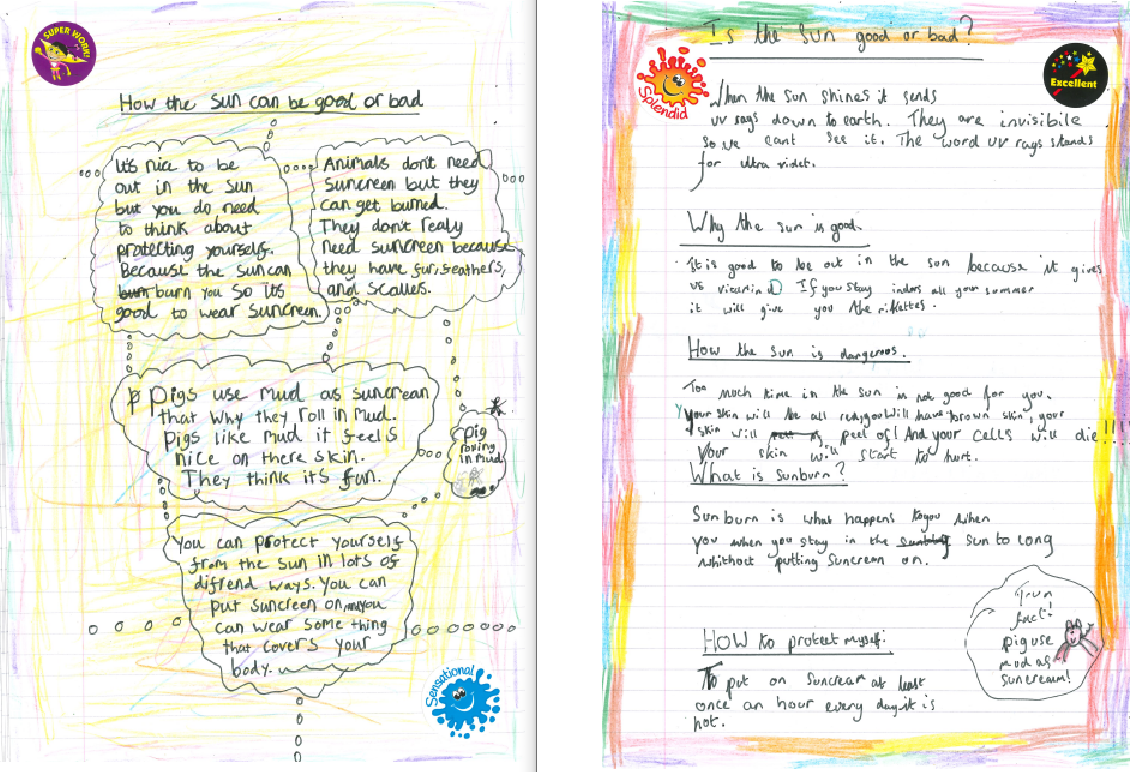 SUPER WORK!
How the sun can be good or bad
It's nice to be
out in the sun
but you do need
to think about
protecting yourself.
Because the sun can
burn you so its
good to wear suncreen.
Animals don't need
suncreen but they
can get burned.
They don't realy
need suncreen because
they have fur, feathers,
and scalles.
Pigs use mud as suncrean
that why they roll in mud.
pigs like mud it feels
nice on there skin.
They think its fun.
pig
in mud.
You can protect yourself
from the sun in lots of
difrend ways. You can
put suncreen on, and you
can wear some thing
that covers your
body.
Sensational
Is the sun good or bad?
Splendid
Excellent
When the sun shines it sends
uv rays down to earth. They are invisibile
so we cant see it. The word uv rays stands
for ultra violet.
Why the sun is good.
It is good to be out in the sun because it gives
us D If you stay indors all your summer
it will give you the rikettes.
How the sun is dangeros.
Too much time in the sun is not good for you.
your skin will be all red, you will have brown skin, your
skin will peel of! And your cells will die!!!
Your skin will start to hurt.
What is sunburn?
Sunburn is what happens to you when
you when you stay in the sun to long
whithout putting suncrem on.
HOW to protect myself:
To put on suncream at least
once an hour every day it is
hot.
Fun
fact!
pig use
mud as
suncream!